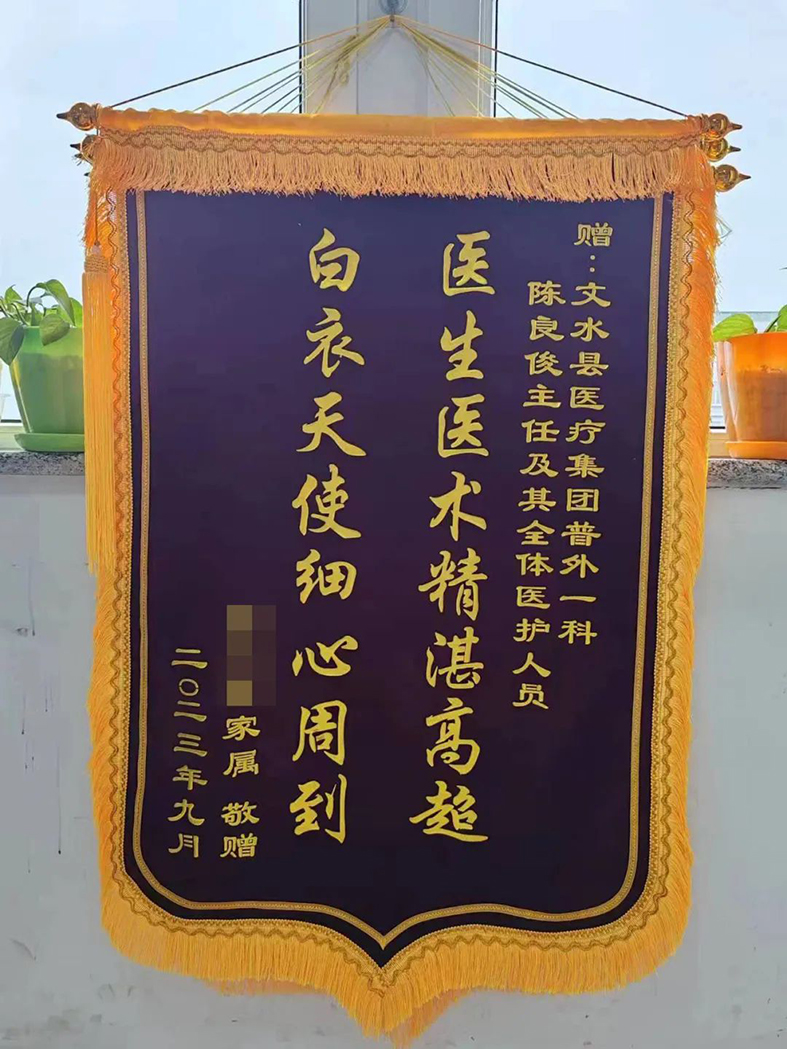 赠：文水县医疗集团普外一科
陈良俊主任及其全体医护人员
医生医术精湛高超
白衣天使细心周到
家属 敬赠
二〇二三年九月